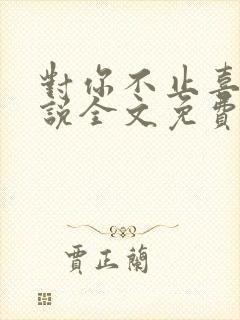 對你不止喜
說全文免費
賈正蘭